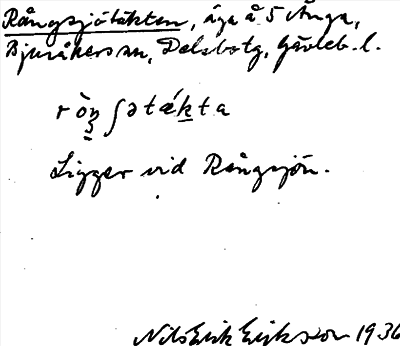 Rångsjötäkten, äga å 5 Ånga,
Bjuråkers sn, Delsbotg, Gävleb. l.
ròŋ ʃətǽkta
Ligger vid Rångsjön.
Nils Erik Eriksson 1936